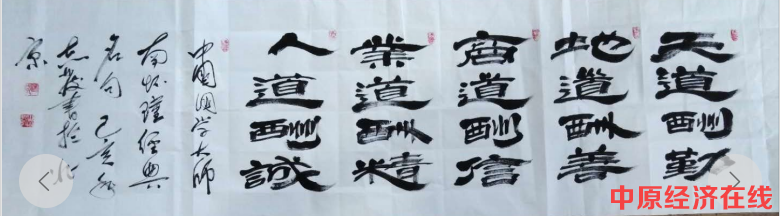 天道酬勤
地道酬善
商道酬信
業道酬精
人道酬誠
中國国学大師
南怀瑾經典
名句 己亥
書於北
京
中原经济在线